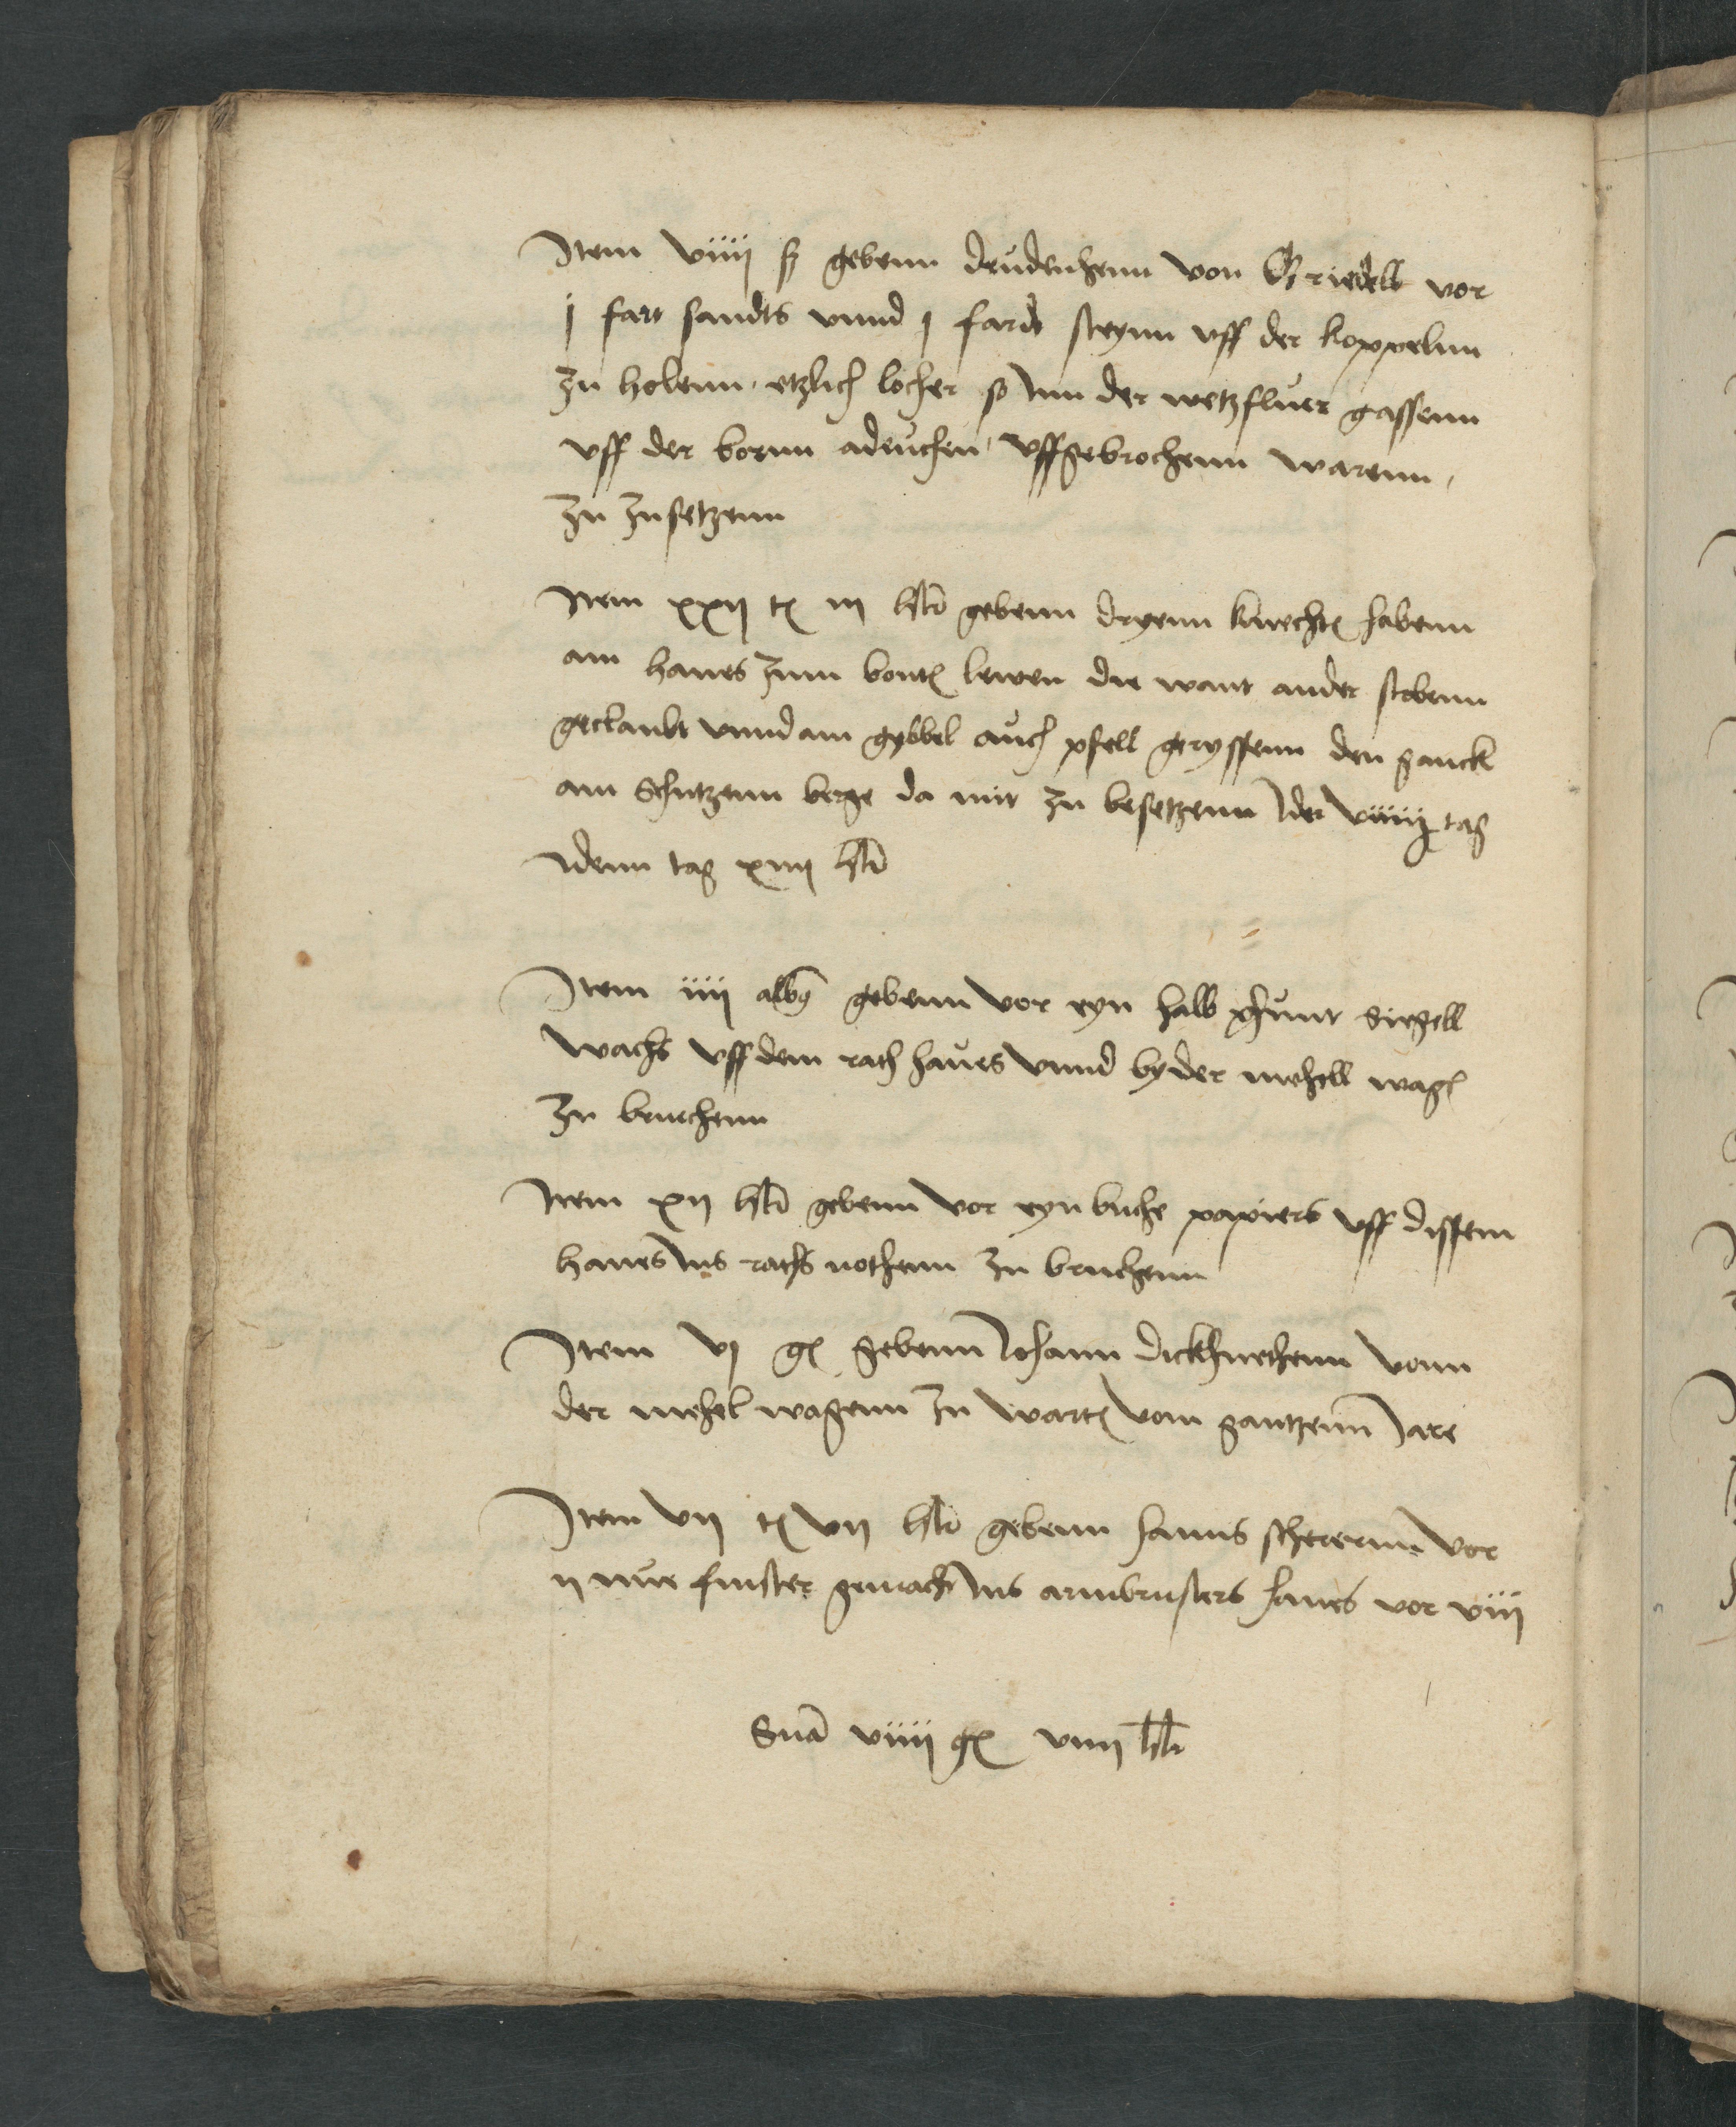 Item viiij ß gebenn drudenhenn von Griedell vor
j fart sandts vnnd j fardt steynn vff der koppelnn
zu holenn etzlich locher so Inn der wetzfluer gassenn
vff der bornn aduchen vffgebrochenn warenn
zu zusetzenn
Item xxij t iij hlr gebenn dryenn knechten habenn
am haues zum bonten lewen die want ander stobenn
geclaubt vnnd am gybbel auch pfell geryssenn den ganck
am schutzenn berge da mit zu besetzenn Ider viiij tag
Idenn tag xviij hlr
Item iiij albus gebenn vor eyn halb phunt siegell
wachs vff dem rath haues vnnd by der mehell wagen
zu bruchenn
Item xij hlr gebenn vor eyn buche papiers vff dissem
haues Ins raths nothenn zu bruchenn
Item vj g gebenn Johann dickhuethenn vonn
der mehel wagenn zu warten vom gantzenn Jare
Item vij t vij hlr gebenn hanns schererun vor
ij nuwe finster gemacht Ins armbrusters haues vor viij
Summa viiij g viij hlr